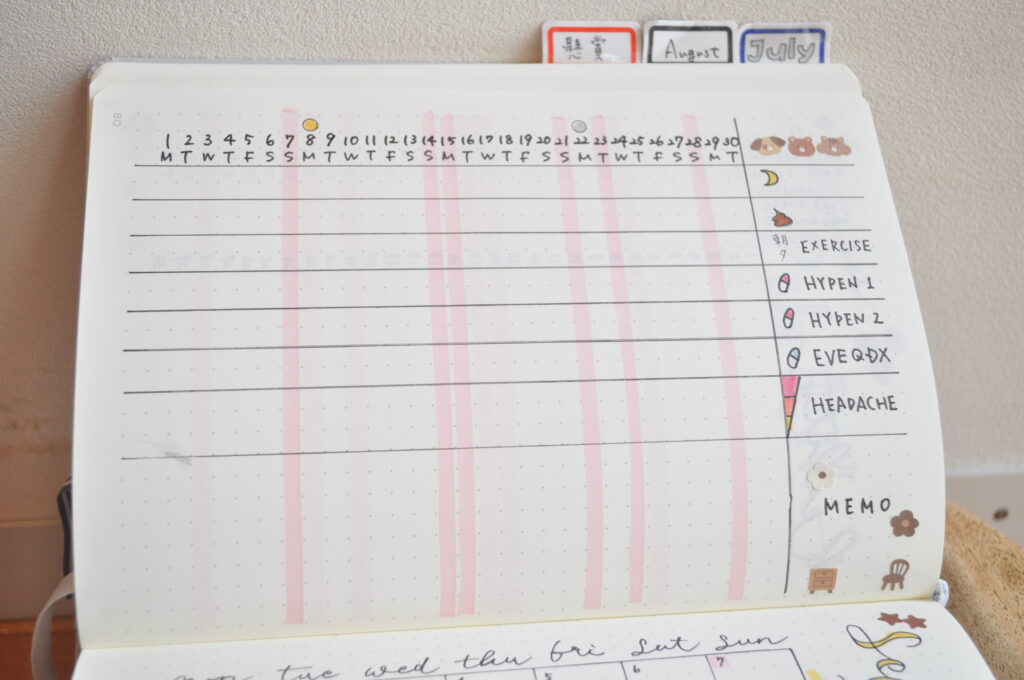 懸賞
August
July
80
1 2 3 4 5 6 7 8 9 10 11 12 13 14 15 16 17 18 19 20 21 22 23 24 25 26 27 28 29 30
M T W T F S S M T W T F S S M T W T F S S M T W T F S S M T
朝夕 EXERCISE
HYPEN 1
HYPEN 2
EVEQDX
HEADACHE
MEMO
tue wed thu fri sat sun
5 6 7